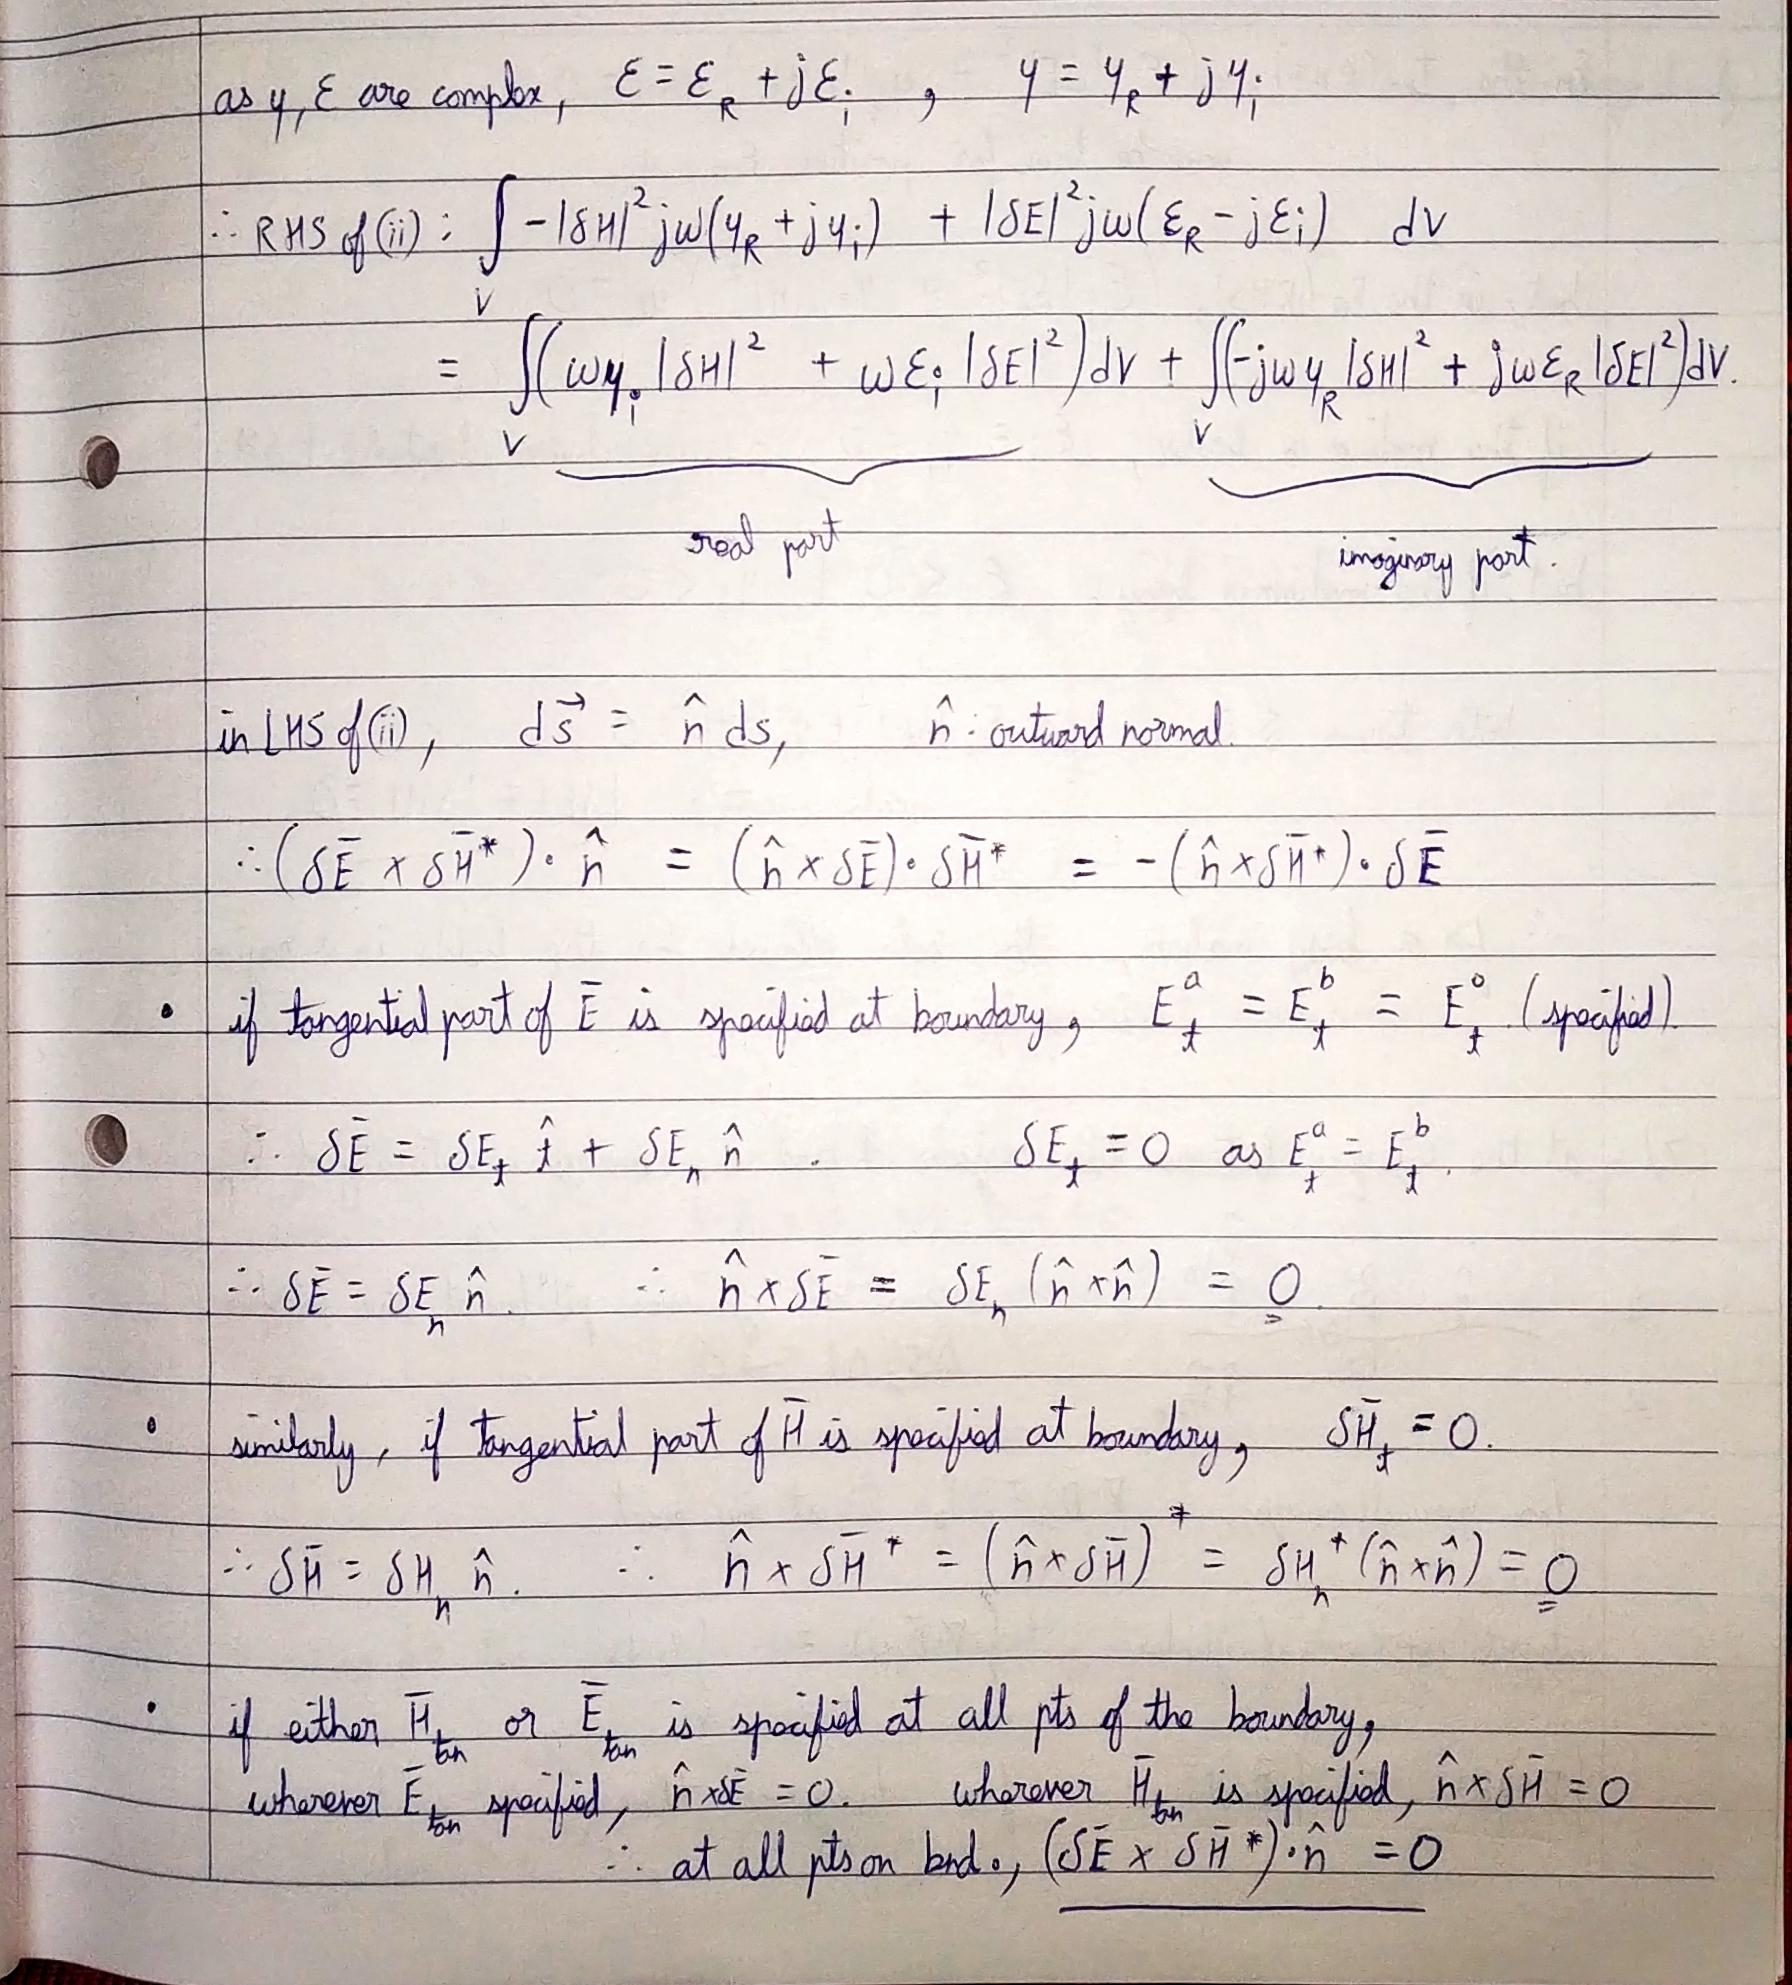 as μ, ε are complex, ε = ε_R + jε_i , μ = μ_R + jμ_i
∴ RHS of (ii) : ∫_V -|δH|² jω(μ_R + jμ_i) + |δE|² jω(ε_R - jε_i) dV
= ∫_V (ωμ_i |δH|² + ωε_i |δE|²) dV + ∫_V (-jωμ_R |δH|² + jωε_R |δE|²) dV.
real part imaginary part.
in LHS of (ii), ds⃗ = n̂ ds, n̂ : outward normal.
∴ (δĒ × δH̄*) · n̂ = (n̂ × δĒ) · δH̄* = -(n̂ × δH̄*) · δĒ
• if tangential part of Ē is specified at boundary, E_t^a = E_t^b = E_t^o (specified).
∴ δĒ = δE_t t̂ + δE_n n̂ . δE_t = 0 as E_t^a = E_t^b.
∴ δĒ = δE_n n̂. ∴ n̂ × δĒ = δE_n (n̂ × n̂) = 0.
• similarly, if tangential part of H̄ is specified at boundary, δH̄_t = 0.
∴ δH̄ = δH_n n̂. ∴ n̂ × δH̄* = (n̂ × δH̄)* = δH_n* (n̂ × n̂) = 0
• if either H̄_tan or Ē_tan is specified at all pts of the boundary,
wherever Ē_tan specified, n̂ × δĒ = 0. wherever H̄_tan is specified, n̂ × δH̄ = 0
∴ at all pts on bnd., (δĒ × δH̄*) · n̂ = 0